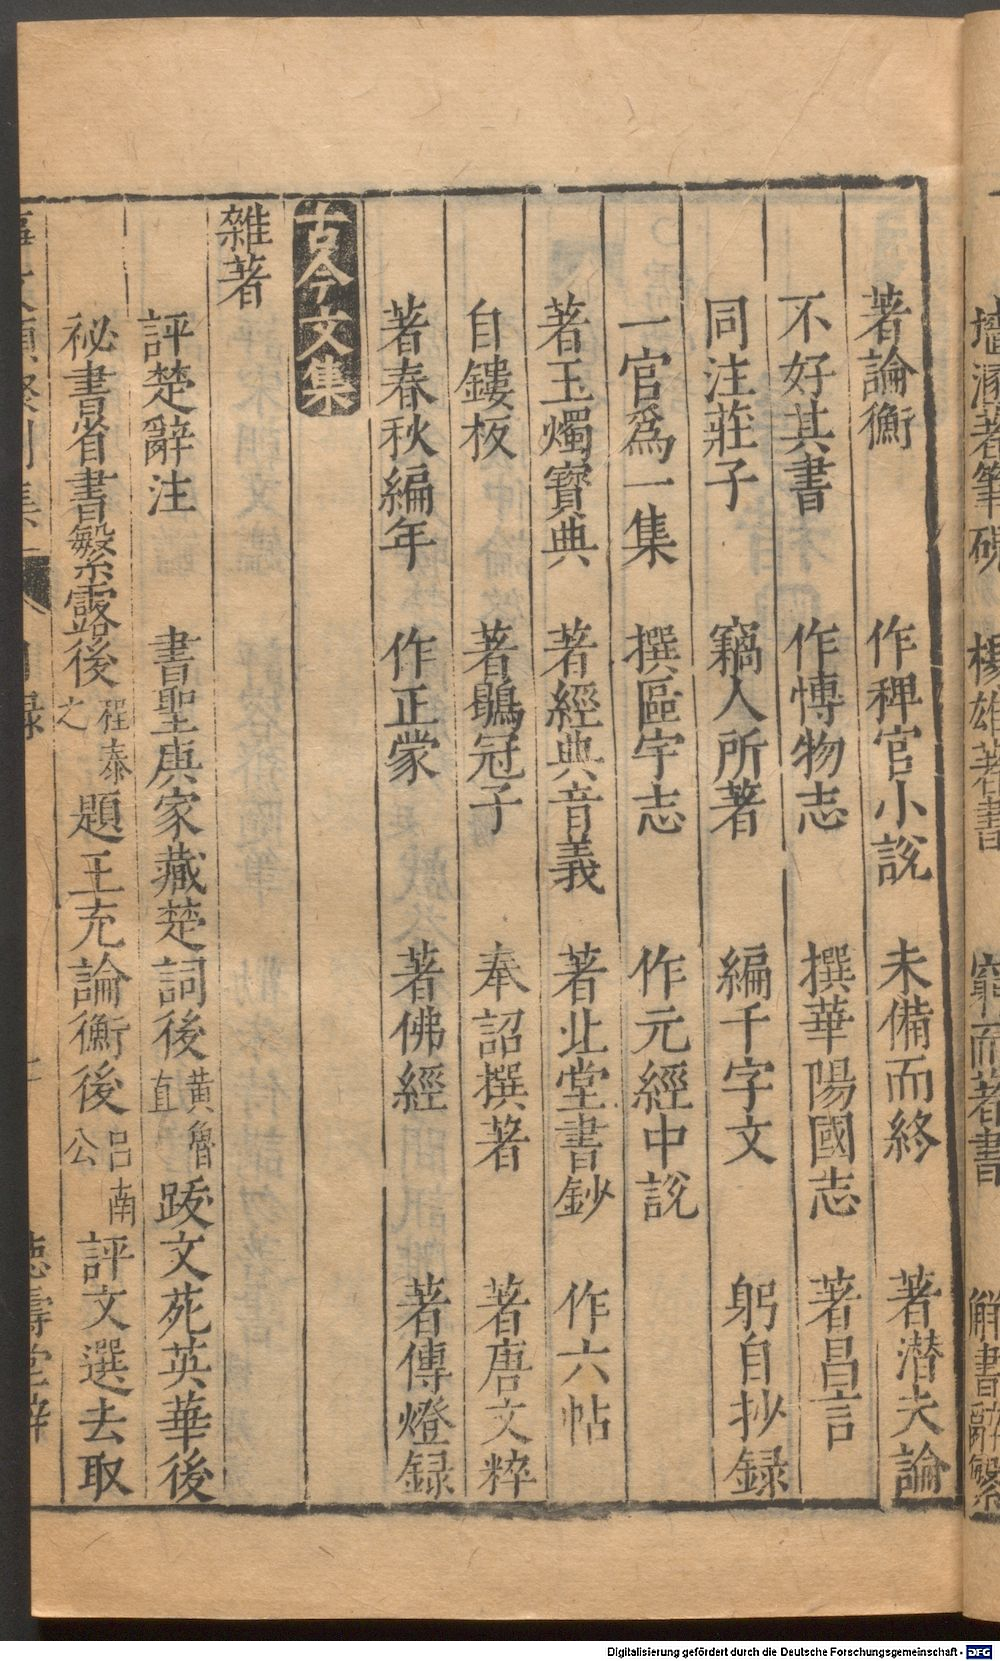 墻溷著筆硯　楊雄著書　窮而著書　解書辭繁
著論衡　作稗官小說　未備而終　著潜夫論
不好其書　作愽物志　撰華陽國志　著昌言
同注莊子　竊人所著　編千字文　躬自抄録
一官爲一集　撰區宇志　作元經中說
著玉燭寶典　著經典音義　著北堂書鈔　作六帖
自鏤板　著鶡冠子　奉詔撰著　著唐文粹
著春秋編年　作正蒙　著佛經　著傳燈録
古今文集
雜著
評楚辭注　書聖庚家藏楚詞後黄魯直　跋文苑英華後
秘書省書繁露後程泰之　題王充論衡後呂南公　評文選去取
Digitalisierung gefördert durch die Deutsche Forschungsgemeinschaft - DFG